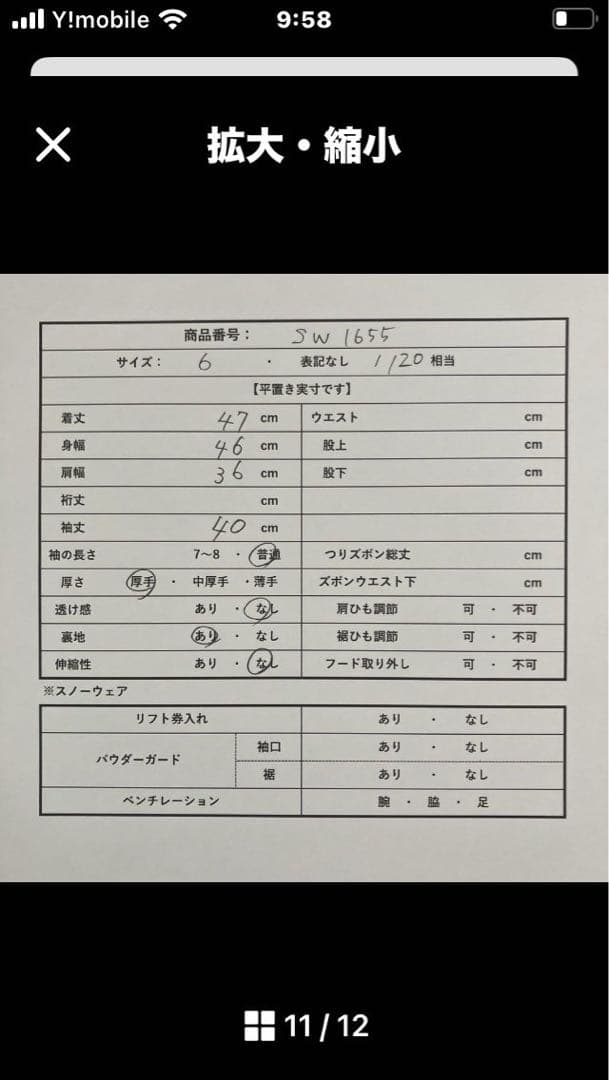 Y!mobile 9:58
拡大・縮小
商品番号： SW 1655
サイズ： 6 ・ 表記なし 1/20 相当
【平置き実寸です】
着丈 47 cm ウエスト cm
身幅 46 cm 股上 cm
肩幅 36 cm 股下 cm
裄丈 cm
袖丈 40 cm
袖の長さ 7〜8 ・ 普通 つりズボン総丈 cm
厚さ 厚手 ・ 中厚手 ・薄手 ズボンウエスト下 cm
透け感 あり ・ なし 肩ひも調節 可 ・ 不可
裏地 あり ・ なし 裾ひも調節 可 ・ 不可
伸縮性 あり ・ なし フード取り外し 可 ・ 不可
※スノーウェア
リフト券入れ あり ・ なし
パウダーガード 袖口 あり ・ なし
裾 あり ・ なし
ベンチレーション 腕 ・ 脇 ・ 足
11 / 12